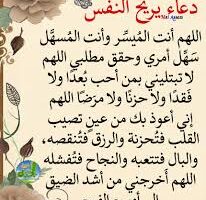 دعاء يريح النفس
اللهم أنت المُيسِّر وأنت المُسهِّل
سَهِّل أمري وحقق مطلبي اللهم
لا تبتليني بمن أحب بُعدًا ولا
فَقدًا ولا حزنًا ولا مرَضًا اللهم
إني أعوذ بك من عينٍ تصيب
القلب فتُحزنة والرزق فتُنقصه،
والبال فتتعبه والنجاح فتُفشله
اللهم أخرجني من أشد الضيق